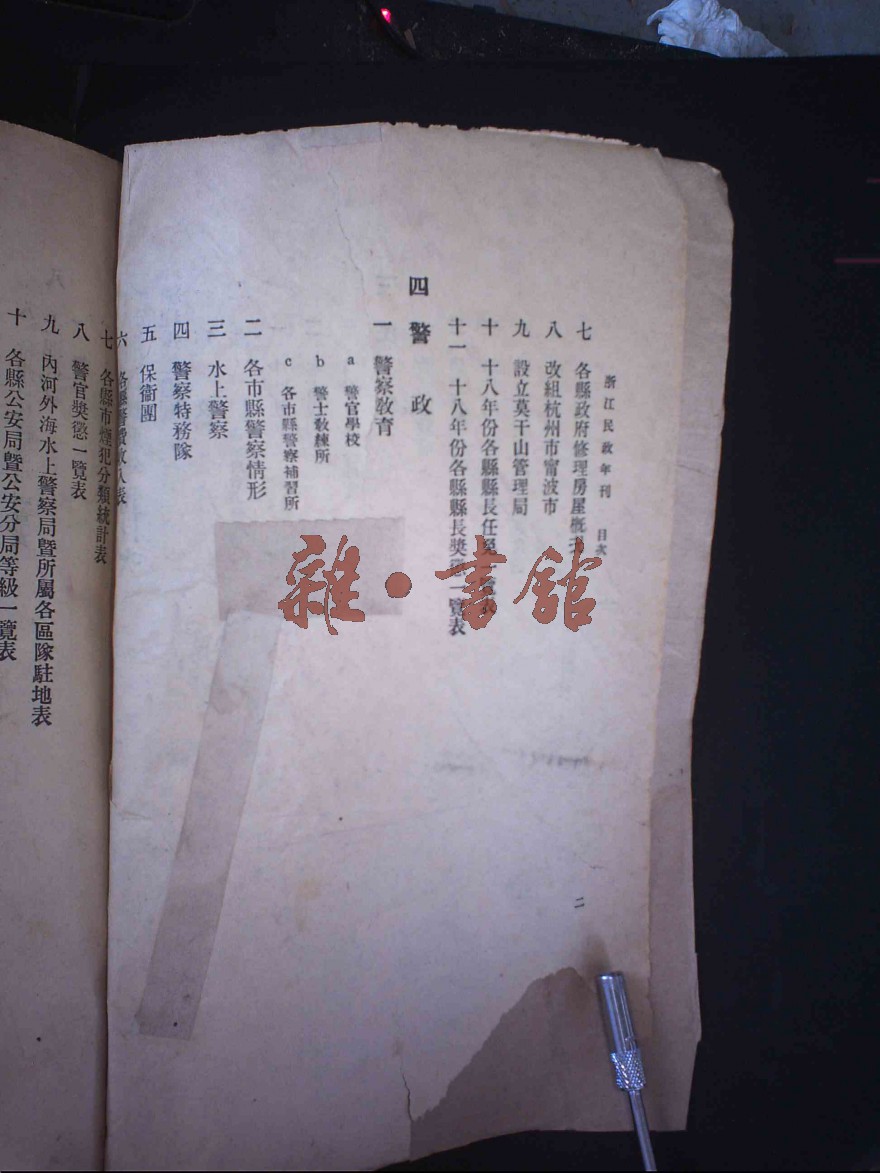 浙江民政年刊 目次
七 各縣政府修理房屋概
八 改組杭州市甯波市
九 設立莫干山管理局
十 十八年份各縣縣長任覽表
十一 十八年份各縣縣長奬懲一覽表
四 警政
一 警察教育
a 警官學校
b 警士教練所
c 各市縣警察補習所
二 各市縣警察情形
三 水上警察
四 警察特務隊
五 保衞團
六 各縣警費收入表
七 各縣市煙犯分類統計表
八 警官奬懲一覽表
九 內河外海水上警察局暨所屬各區隊駐地表
十 各縣公安局暨公安分局等級一覽表
二
雜·書館